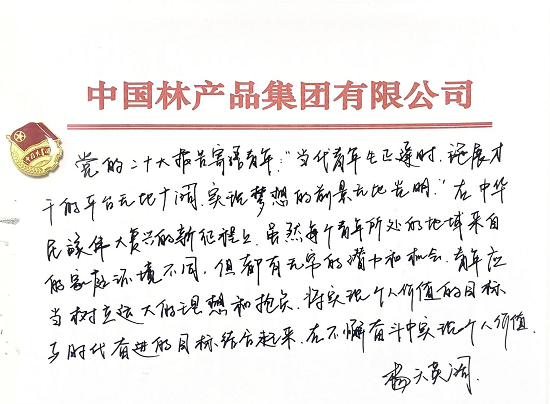 中国林产品集团有限公司
党的二十大报告寄语青年:“当代青年生正逢时,施展才
干的平台无比广阔,实现梦想的前景无比光明。”在中华
民族伟大复兴的新征程上,虽然每个青年所处的地域来自
的家庭环境不同,但都有无穷的潜力和机会,青年应
当树立远大的理想和抱负,将实现个人价值的目标
与时代奋进的目标结合起来,在不懈奋斗中实现个人价值。